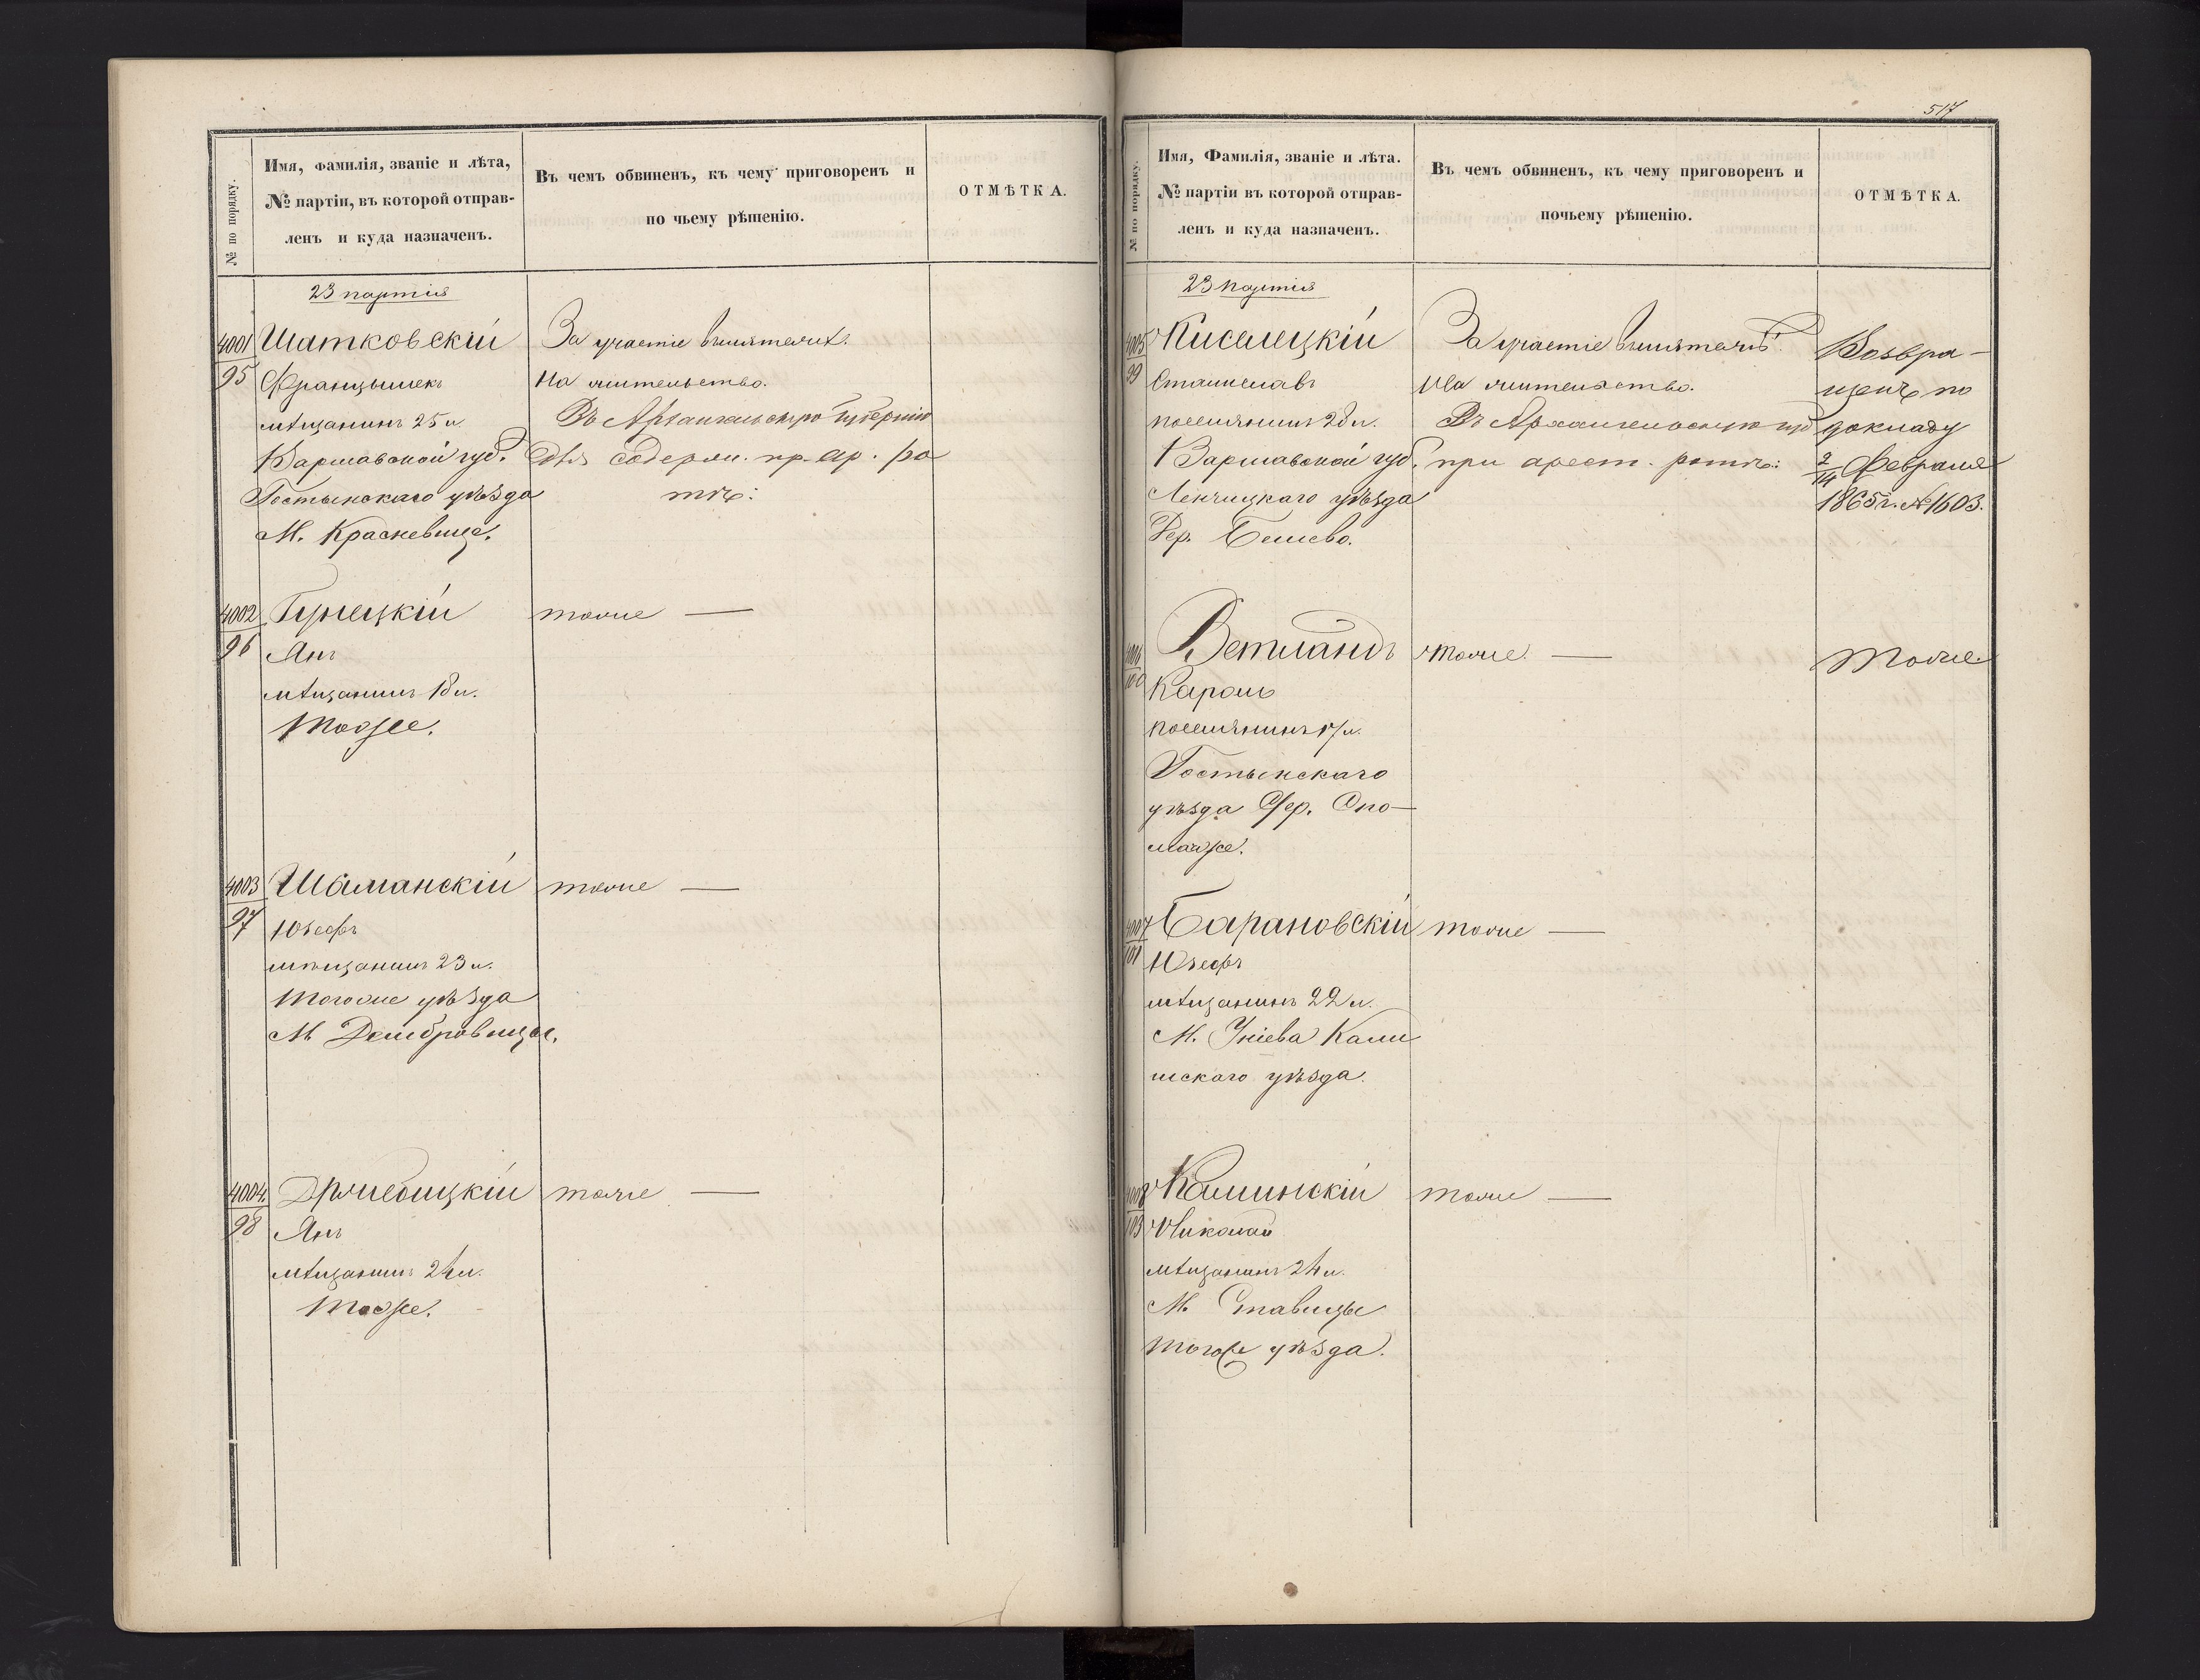 № по порядку.
Имя, фамилія, званіе и лѣта,
№ партіи, въ которой отправ-
ленъ и куда назначенъ.
Въ чемъ обвиненъ, къ чему приговоренъ и
по чьему рѣшенію.
ОТМѢТКА.
23 партія
4001
95
Шатковскій
Францышекъ
мѣщанинъ 25 л.
Варшавской губ.
Гостынскаго уѣзда
М. Красневице.
За участіе въ мятежѣ.
На жительство.
Въ Архангельскую губернію
для содержи. пр. ар. ро
тѣ:
4002
96
Янъ
мѣщанинъ 18 л.
Тоже.
тоже —
4003
97
Шаманскій
Юзефъ
мѣщанинъ 23 л.
Тогоже уѣзда
М. Домбровице.
тоже —
4004.
98
Янъ
мѣщанинъ 24 л.
Тоже.
тоже —
517
№ по порядку.
Имя, Фамилія, званіе и лѣта.
№ партіи въ которой отправ-
ленъ и куда назначенъ.
Въ чемъ обвиненъ, къ чему приговоренъ и
почьему рѣшенію.
ОТМѢТКА.
23 партія
4005
99
Киселецкій
Станиславъ
поселянинъ 28 л.
Варшавской губ.
Ленчицкаго уѣзда
Дер.
За участіе въ мятежѣ.
На жительство.
Въ Архангельскую губ
при арест. ротѣ:
Возвра-
щенъ по
докладу
2/14 Февраля
1865 г. № 1603.
4006
100
Ветландъ
Кароль
поселянинъ 17 л.
Гостынскаго
уѣзда Дер. Ово-
тоже. —
Тоже.
4007
101
Барановскій
Юзефъ
мѣщанинъ 22 л.
М. Уніева Кали
шскаго уѣзда.
тоже —
4008
103
Калинскій
Николай
мѣщанинъ 24 л.
М. Ставицы
тогоже уѣзда.
тоже —